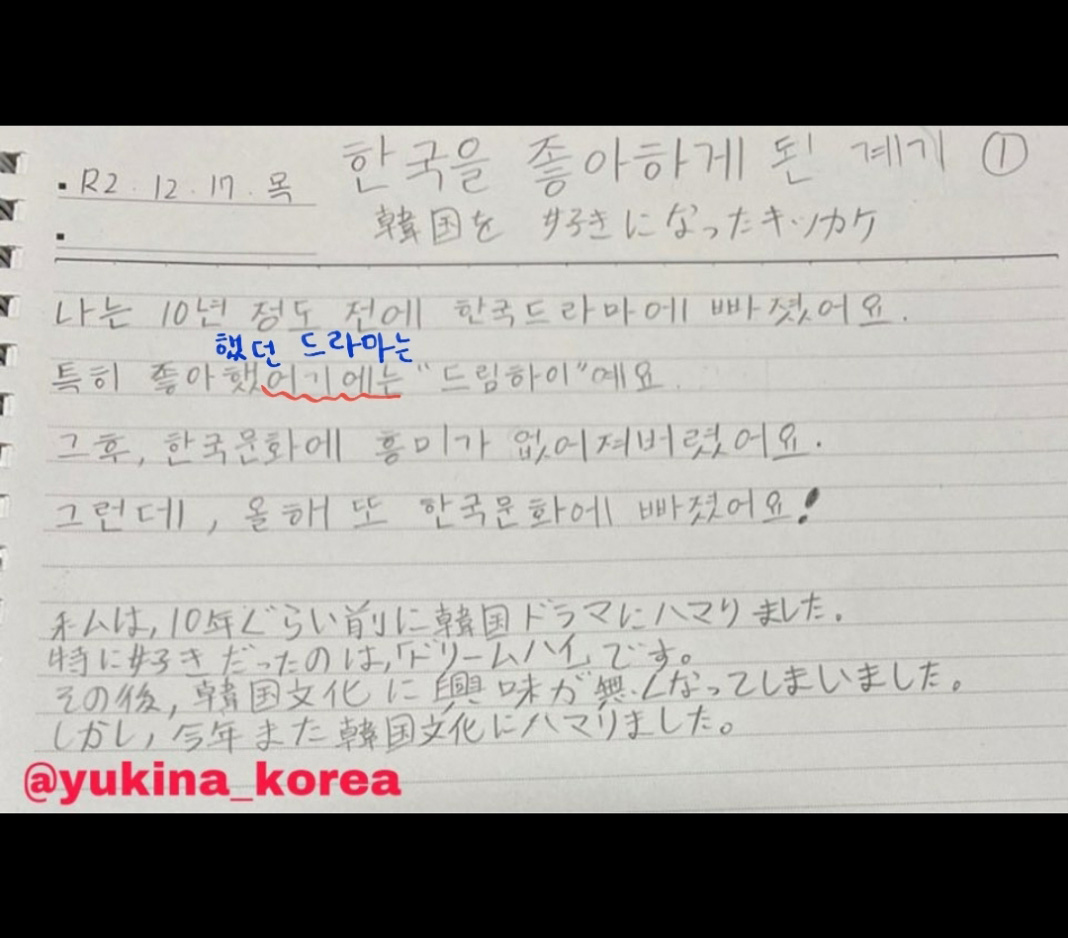 한국을 좋아하게 된 계기 ①
R2.12.17.목
韓国を 好きになったキッカケ
나는 10년 정도 전에 한국드라마에 빠졌어요.
했던 드라마는
특히 좋아했어기에는 "드림하이"예요.
그후, 한국문화에 흥미가 없어져버렸어요.
그런데, 올해 또 한국문화에 빠졌어요!
私は, 10年ぐらい前に韓国ドラマにハマりました.
特に好きだったのは,「ドリームハイ」です。
その後, 韓国文化に興味が無くなってしまいました。
しかし, 今年また韓国文化にハマりました。
@yukina_korea